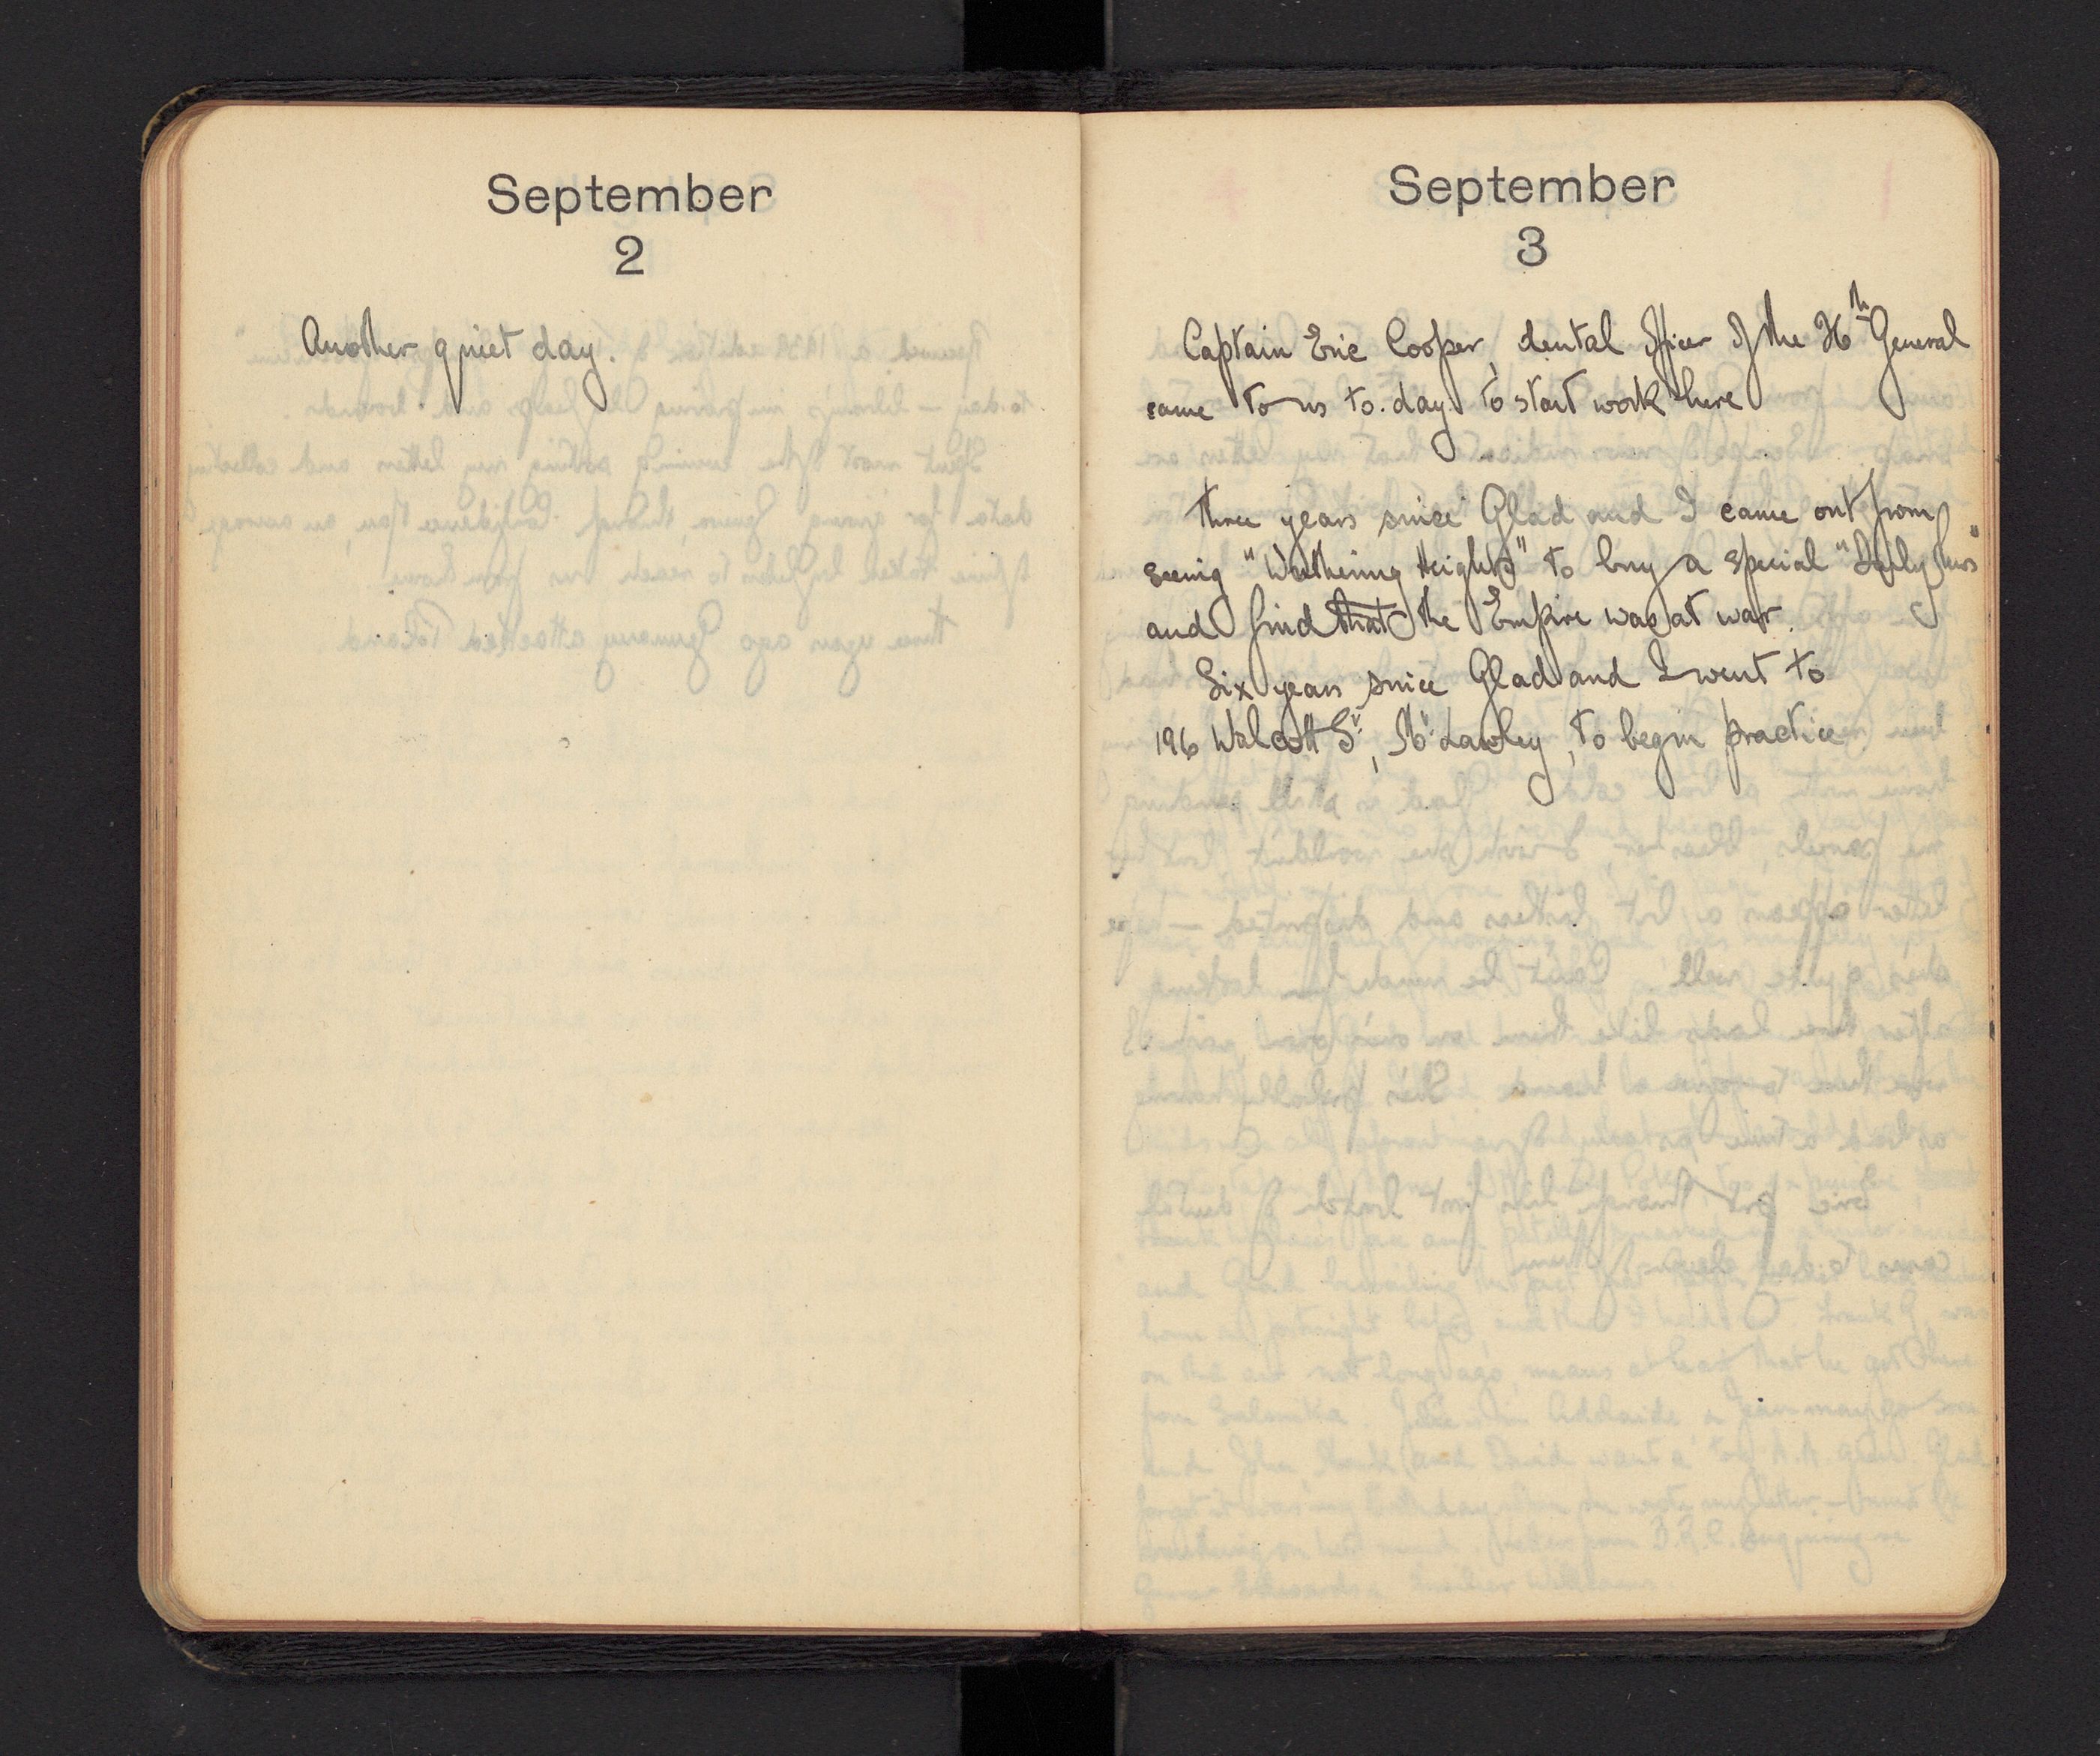 September
2
Another quiet day.
September
3
Captain Eric Cooper, dental officer of the 36th General
came to us to-day to start work here
Three years since Glad and I came out from
seeing "Wuthering Heights" to buy a special "Daily News"
and find that the Empire was at war.
Six years since Glad and I went to
196 Walcott St, Mt Lawley, to begin practice